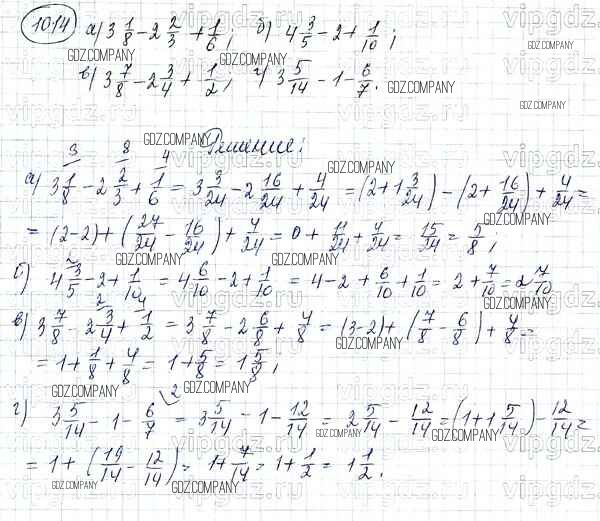 1014 а) 3 1/8 - 2 2/3 + 1/6; б) 4 3/5 - 2 + 1/10;
в) 3 7/8 - 2 3/4 + 1/2; г) 3 5/14 - 1 - 6/7.
Решение:
а) 3 1/8 - 2 2/3 + 1/6 = 3 3/24 - 2 16/24 + 4/24 = (2 + 1 3/24) - (2 + 16/24) + 4/24 =
= (2-2) + (27/24 - 16/24) + 4/24 = 0 + 11/24 + 4/24 = 15/24 = 5/8;
б) 4 3/5 - 2 + 1/10 = 4 6/10 - 2 + 1/10 = 4 - 2 + 6/10 + 1/10 = 2 + 7/10 = 2 7/10
в) 3 7/8 - 2 3/4 + 1/2 = 3 7/8 - 2 6/8 + 4/8 = (3-2) + (7/8 - 6/8) + 4/8 =
= 1 + 1/8 + 4/8 = 1 + 5/8 = 1 5/8;
г) 3 5/14 - 1 - 6/7 = 3 5/14 - 1 - 12/14 = 2 5/14 - 12/14 = (1 + 1 5/14) - 12/14 =
= 1 + (19/14 - 12/14) = 1 + 7/14 = 1 + 1/2 = 1 1/2.
GDZ.COMPANY
vipgdz.ru